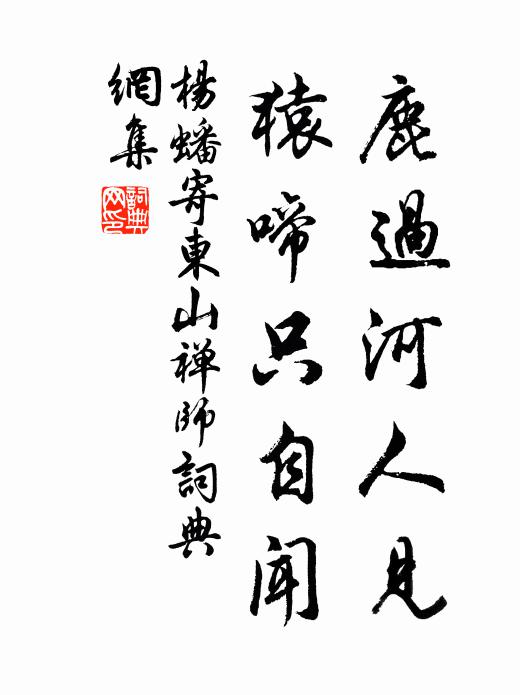 鹿過河人見
猿啼只自聞
楊蟠寄東山禅師詞典
網集
詞典
网印